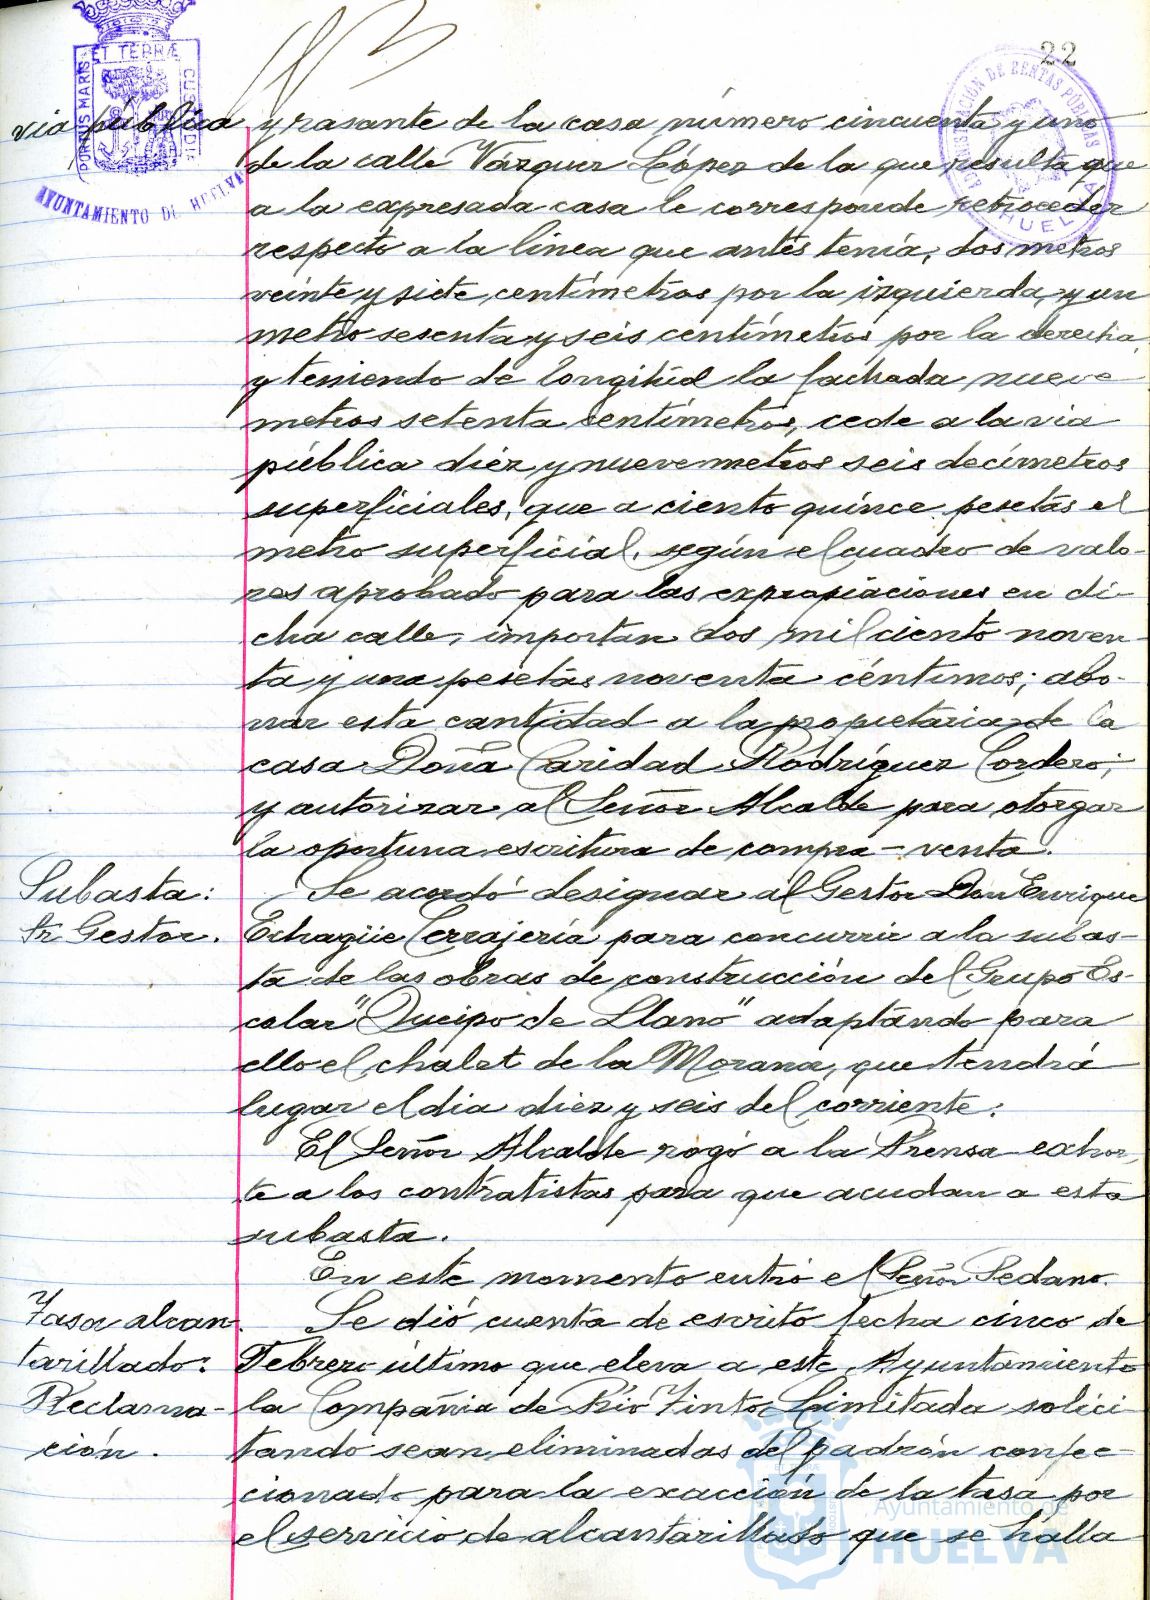 22
PORTUS MARIS ET TERRÆ CUSTODIÆ
AYUNTAMIENTO DE HUELVA
ADMINISTRACIÓN DE RENTAS PÚBLICAS
HUELVA
via pública
y rasante de la casa número cincuenta y uno
de la calle Vázquez López de la que resulta que
a la expresada casa le corresponde retroceder
respecto a la linea que antes tenía, dos metros
veinte y siete centímetros por la izquierda, y un
metro sesenta y seis centímetros por la derecha,
y teniendo de longitud la fachada nueve
metros setenta centímetros, cede a la via
pública diez y nueve metros seis decímetros
superficiales, que a ciento quince pesetas el
metro superficial, según el cuadro de valo-
res aprobado para las expropiaciones en di-
cha calle, importan dos mil ciento noven-
ta y una pesetas noventa céntimos; abo-
nar esta cantidad a la propietaria de la
casa Doña Caridad Rodríguez Cordero;
y autorizar al Señor Alcalde para otorgar
la oportuna escritura de compra-venta.
Subasta:
Sr Gestor.
Se acordó designar al Gestor Don Enrique
Echagüe Cerrajería para concurrir a la subas-
ta de las obras de construcción del Grupo Es-
colar "Queipo de Llano" adaptando para
ello el chalet de la Morana, que tendrá
lugar el dia diez y seis del corriente.
El Señor Alcalde rogó a la Prensa exhor-
te a los contratistas para que acudan a esta
subasta.
En este momento entró el Señor Sedano.
Tasa alcan-
tarillado:
Reclama-
ción.
Se dió cuenta de escrito fecha cinco de
Febrero último que eleva a este Ayuntamiento
la Compañia de Rio Tinto Limitada solici
tando sean eliminadas del padrón confec-
cionado para la exacción de la tasa por
el servicio de alcantarillado que se halla
Ayuntamiento de
HUELVA